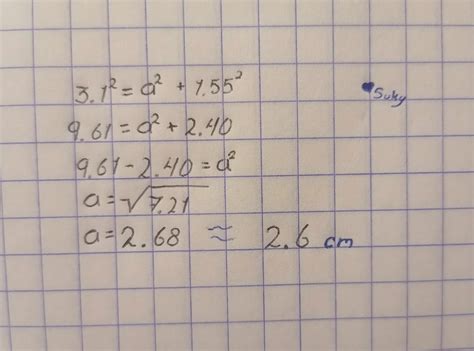 3.1² = a² + 1.55²
9.61 = a² + 2.40
9.61 - 2.40 = a²
a = √7.21
a = 2.68 ≈ 2.6 cm
Suky